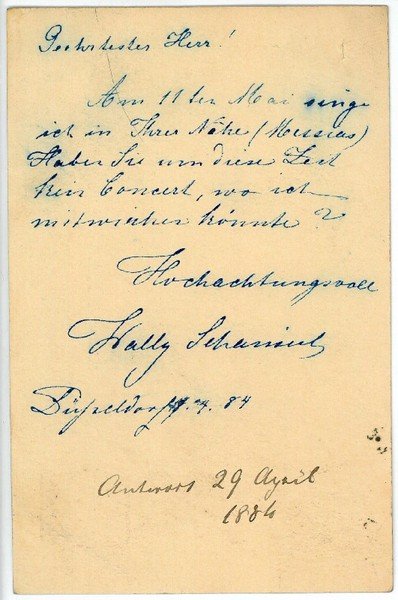 Geehrtester Herr!
Am 11ten Mai singe
ich in Ihrer Nähe (Messias)
Haben Sie um diese Zeit
kein Concert, wo ich
mitwirken könnte?
Hochachtungsvoll
Wally Schauseil
Düsseldorf .4. 84
Antwort 29 April
1884